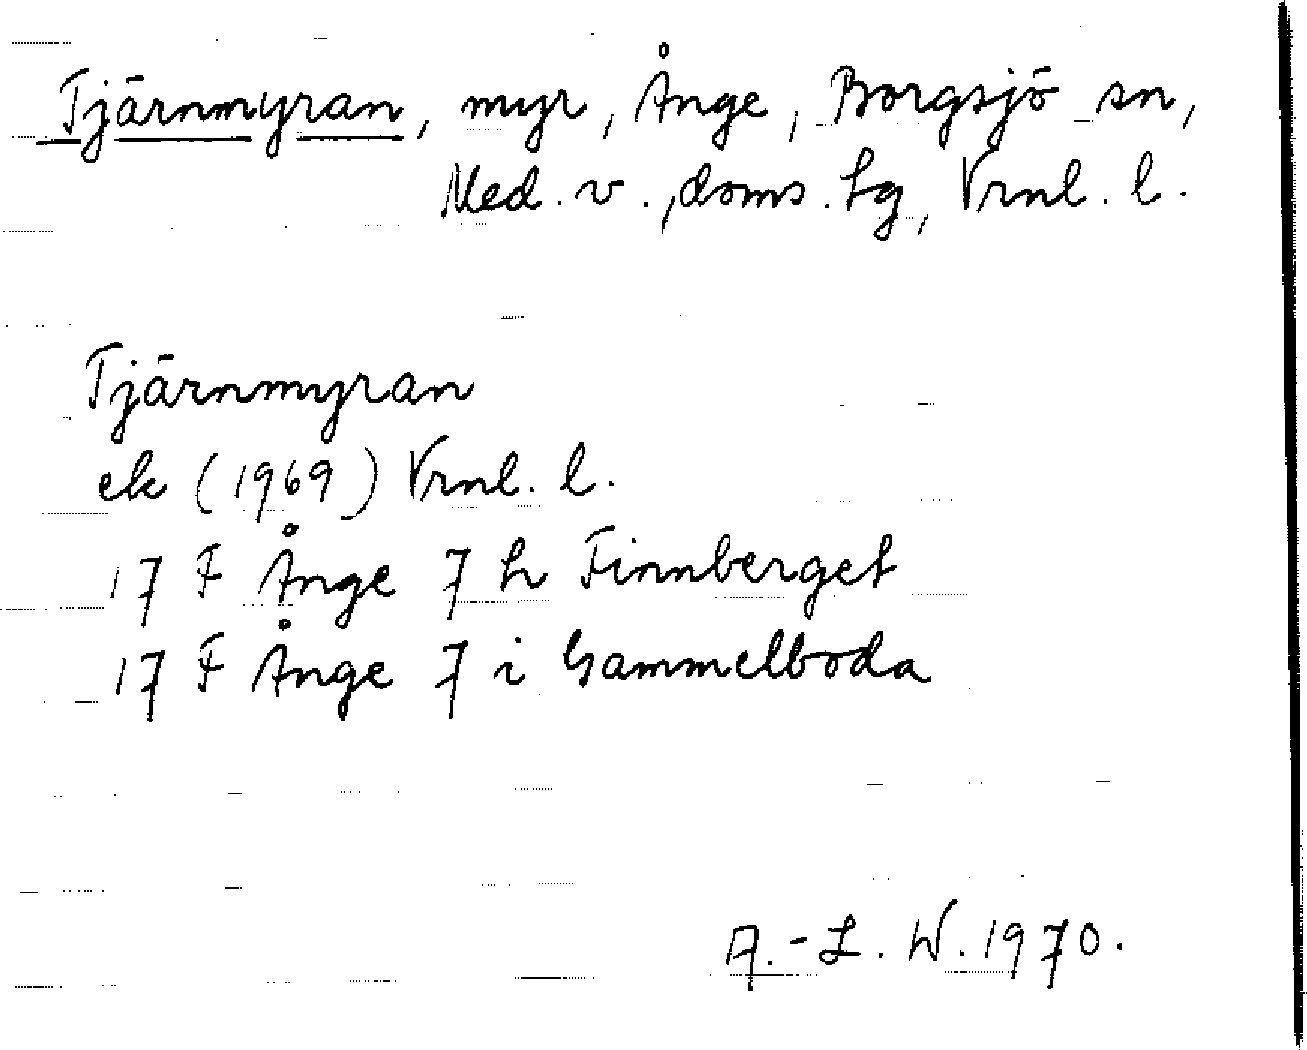 Tjärnmyran, myr, Ånge, Borgsjö sn,
Med. v., doms. hg, Vrnl. l.
Tjärnmyran
ek (1969) Vrnl. l.
17 F Ånge 7 h Finnberget
17 F Ånge 7 i Gammelboda
A.-L. W. 1970.